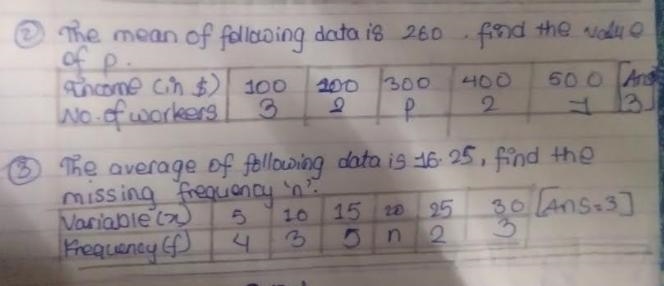 ② The mean of following data is 260. find the value
of p.
Income (in $) 100 200 300 400 500 [Ans
No. of workers 3 2 p 2 1 3]
③ The average of following data is 16.25, find the
missing frequency 'n'.
Variable (x) 5 10 15 20 25 30 [Ans=3]
Frequency (f) 4 3 5 n 2 3